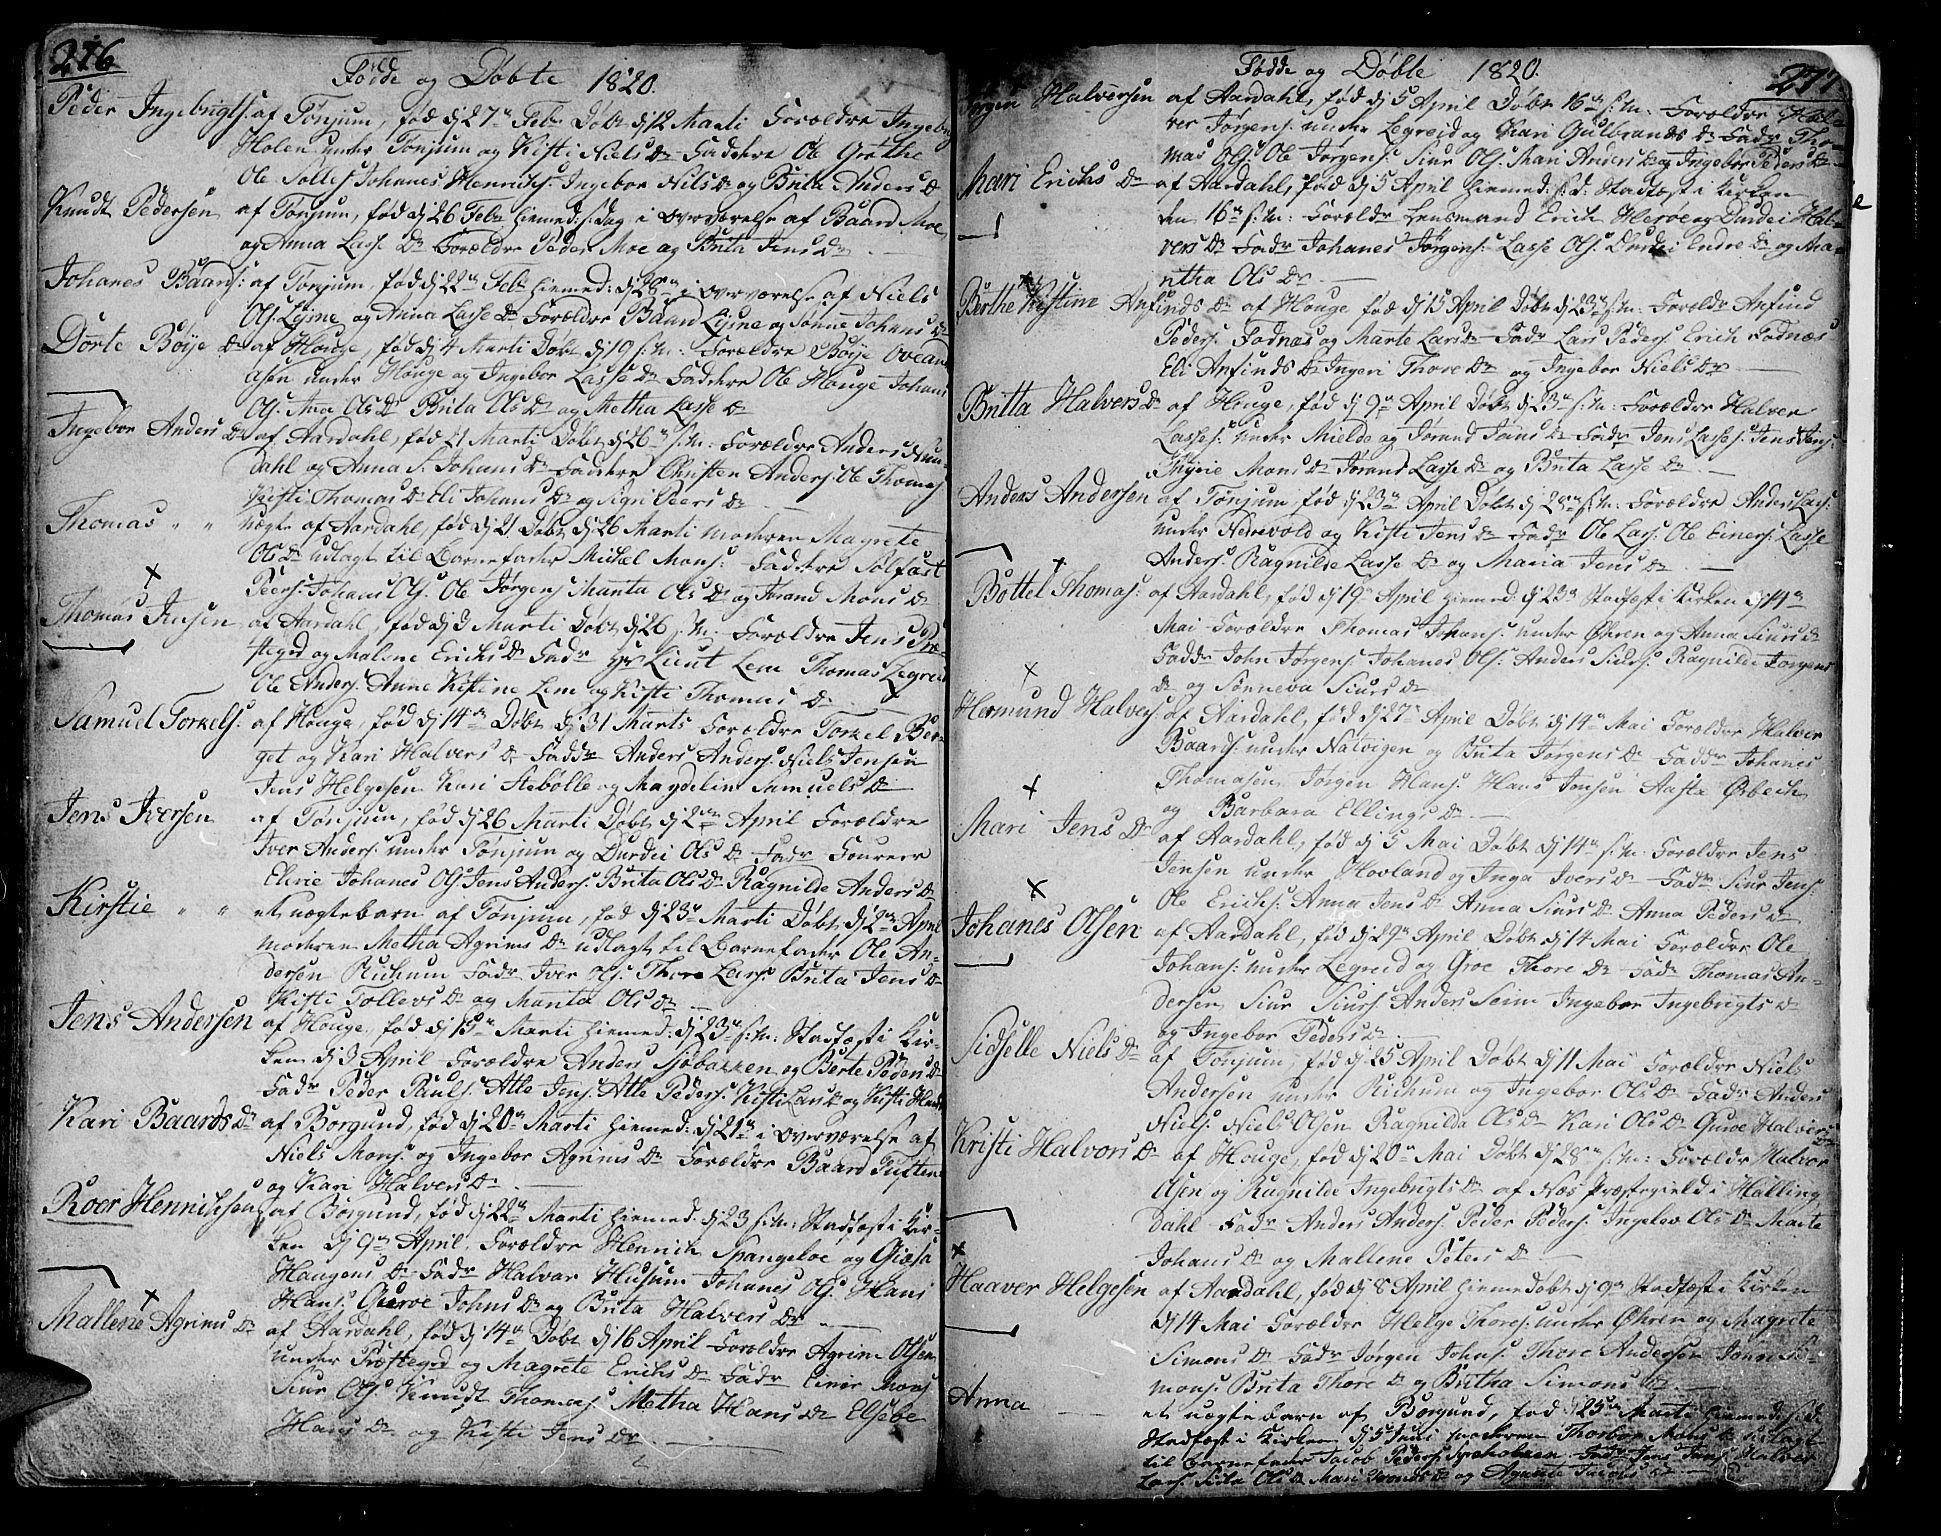 276
Fødde og Døbte 1820.
Peder Ingebrigts: af Tønjum, fød dj 27n Febr Døbt dj 12 Marti Forældre Ingebr
Holen under Tønjum og Kisti Niels Dr Faddere Ole Grøthe
Ole Johanes Henrichs: Ingebor Nils Dr og Brita Anders Dr
Knudt Pedersen af Tønjum, fød dj 26 Febr hiemed: s: Dag i overværelse af Baard Moe
og Anna Lasse Dr Forældre Peder Moe og Brita Jens Dr
Johanes Baards: af Tønjum, fød dj 22n Febr hiemed: dj 28n i overværelse af Niels
Ols: Lysne og Anna Lasse Dr Forældre Baard Lysne og Sønne Johans Dr
Dorte Bøije Dr af Houge, fød dj 4 Marti Døbt dj 19 s: M: Forældre Bøije
under Houge og Ingebor Lasse Dr Faddere Ole Houge Johans
Ols: Ana Ols Dr Brita Ols Dr og Metha Lasse Dr
Ingebor Anders Dr af Aardahl, fød 21 Marti Døbt dj 26n s: M: Forældre Anders Nun-
dahl og Anna S. Johans Dr Faddere Christen Anders: Ole Thomas
Kisti Thomas Dr Eli Johans Dr og Signi Peers Dr
Thomas " " uægte af Aardahl, fød dj 21 Døbt dj 26 Marti moderen Magrete
Ols Dr udlagt til Barnefader Michel Mons: Faddere Solfast
Peers: Johans Ols: Ole Jørgens: Manta Ols Dr og Jorand Mons Dr
Thomas Jensen af Aardahl, fød dj 3 Marti Døbt dj 26 s: M: Forældre Jens Præ-
stegrd og Malene Erichs Dr Fadr Hr Lieut Lem Thomas Legreid
Ole Anders: Anne Kistine Lem og Kisti Thomas Dr
Samuel Torkels: af Houge, fød dj 14de Døbt dj 31 Marts Forældre Torkel Ber-
get og Kari Halvers Dr Faddr Anders Anders: Niels Jensen
Jens Helgesen Kari Stebølle og Magdelin Samuels Dr
Jens Iversen af Tønjum, fød dj 26 Marti Døbt dj 2den April Forældre
Iver Anders: under Tønjum og Durdei Ols Dr Fadr Foureer
Elerie Johanes Ols: Jens Anders: Brita Ols Dr Ragnilde Anders Dr
Kirstie " " et uægtebarn af Tønjum, fød dj 23de Marti Døbt dj 2den April
moderen Metha Agrims Dr udlagt til Barnefader Ole An-
dersen Richum Fadr Iver Ols: Thore Lars: Brita Jens Dr
Kisti Tollevs Dr og Manta Ols Dr
Jens Andersen af Houge, fød dj 15n Marti hiemed: dj 23de s: M: Stadfæst i Kir-
ken dj 3 April Forældre Anders Siøbakken og Berte Peders Dr
Fadr Peder Pauls: Atle Jens: Atle Peders: Kisti Lars Dr og Kisti Hans
Kari Baards Dr af Borgund, fød dj 20n Marti hiemed: dj 21n i overværelse af
Niels Mons: og Ingebor Agrims Dr Forældre Baard Tuften
og Kari Halvers Dr
Roer Hennichsen af Borgund, fød dj 22n Marti hiemed dj 23 s: M: Stadfæst i Kir-
ken dj 9n April, Forældre Hennich Spangeloe og Giøsa
Haugens Dr Fadr Halvar Husum Johanes Ols: Hans
Hans: Guroe Johns Dr og Brita Halvers Dr
Mallene Agrims Dr af Aardahl, fød dj 14de Døbt dj 16 April Forældre Agrim Olsen
under Præstegrd og Magrete Erichs Dr Fadr Einer Mons:
Siur Ols: Knudt Thomas: Metha Hans Dr Elsebe
Hans Dr og Kisti Jens Dr
277
Fødde og Døbte 1820.
Jørgen Halversen af Aardahl, fød dj 5 April Døbt 16de s: M: Forældre Hal-
ver Jørgens: under Legreid og Kari Gulbrands Dr Fadr Tho-
mas Ols: Ole Jørgens: Siur Ols: Mari Anders Dr og Ingebor Peders Dr
Mari Erichs Dr af Aardahl, fød dj 5 April hiemed: s: d: Stadfæst i Kirken
den 16de s: M: Forældr Lensmand Erich Herøe og Durdei Hal-
vers Dr Fadr Johanes Jørgens: Lasse Ols: Durdei Endre Dr og Ma-
ntha Ols Dr
Berthe Kystine Anfinds Dr af Houge fød dj 15 April Døbt dj 23de s: M: Forældr Anfind
Peders: Fodnæs og Marte Lars Dr Fadr Lars Peders: Erich Fodnæs
Eli Anfinds Dr Ingeri Thore Dr og Ingebor Niels Dr
Britta Halvers Dr af Houge, fød dj 9n April Døbt dj 23de s: M: Forældre Halver
Lasses: under Mielde og Jørand Jens Dr Fadr Jens Lasses: Jens Jens:
Thyrie Mons Dr Jørand Lasse Dr og Brita Lasse Dr
Anders Andersen af Tønjum, fød dj 23de April Døbt dj 28de s: M: Forældre Anders Lars:
under Nedrevold og Kisti Jens Dr Fadr Ole Lars: Ole Einers: Lasse
Anders: Ragnilde Lasse Dr og Maria Jens Dr
Bottel Thomas: af Aardahl, fød dj 19n April hiemed: dj 23de Stadfæst i Kirken dj 14de
Mai Forældre Thomas Johans: under Øhren og Anna Siurs Dr
Faddr John Jørgens: Johanes Ols: Anders Siurs: Ragnilde Jørgens
Dr og Sønneva Siurs Dr
Hermund Halvers: af Aardahl, fød dj 27n April Døbt dj 14de Mai Forældre Halver
Baards: under Natvigen og Brita Jørgens Dr Faddr Johanes
Thomasen Jørgen Hans: Hans Jensen Aasta Ørbech
og Barbara Ellings Dr
Mari Jens Dr af Aardahl, fød dj 5 Mai Døbt dj 14n s: M: Forældre Jens
Jensen under Hovland og Inga Ivers Dr Fadr Siur Jens:
Ole Erichs: Anna Jens Dr Anna Siurs Dr Anna Peders Dr
Johanes Olsen af Aardahl, fød dj 29n April Døbt dj 14 Mai Forældre Ole
Johans: under Legreid og Groe Thore Dr Fadr Thomas An-
dersen Siur Siurs: Anders Seim Ingebor Ingebrigts Dr
og Ingebor Peders Dr
Sidselle Niels Dr af Tønjum, fød dj 25 April Døbt dj 11 Mai Forældre Niels
Andersen under Richum og Ingebor Ols Dr Fadr Anders
Niels: Niels Olsen Ragnilda Ols Dr Kari Ols Dr Guroe Halvers Dr
Kristi Halvors Dr af Houge, fød dj 20n Mai Døbt dj 28de s: M: Forældr Halvor
Olsen og Ragnilde Ingebrigts Dr af Næs Præstegield i Halling
dahl Fadr Anders Anders: Peder Peders: Ingelev Ols Dr Marte
Johans Dr og Mallene Peters Dr
Haaver Helgesen af Aardahl, fød dj 8 April hiemedøbt dj 9n Stadfæst i Kirken
dj 14 Mai Forældre Helge Thores: under Øhren og Magrete
Simons Dr Fadr Jørgen Johns: Thore Andersen Jonn Si-
mons: Brita Thore Dr og Britha Simons Dr
Anna et uægtebarn af Borgund, fød dj 25de Marti hiemed: s: d:
Stadfæst i Kirken dj 5 Juni moderen Thorbor Mons Dr udlagt
til Barnefader Jacob Peders: Fadr Jens Jens: Halver
Lars: Sita Ols Dr Mari Dr og Agante Jacobs Dr